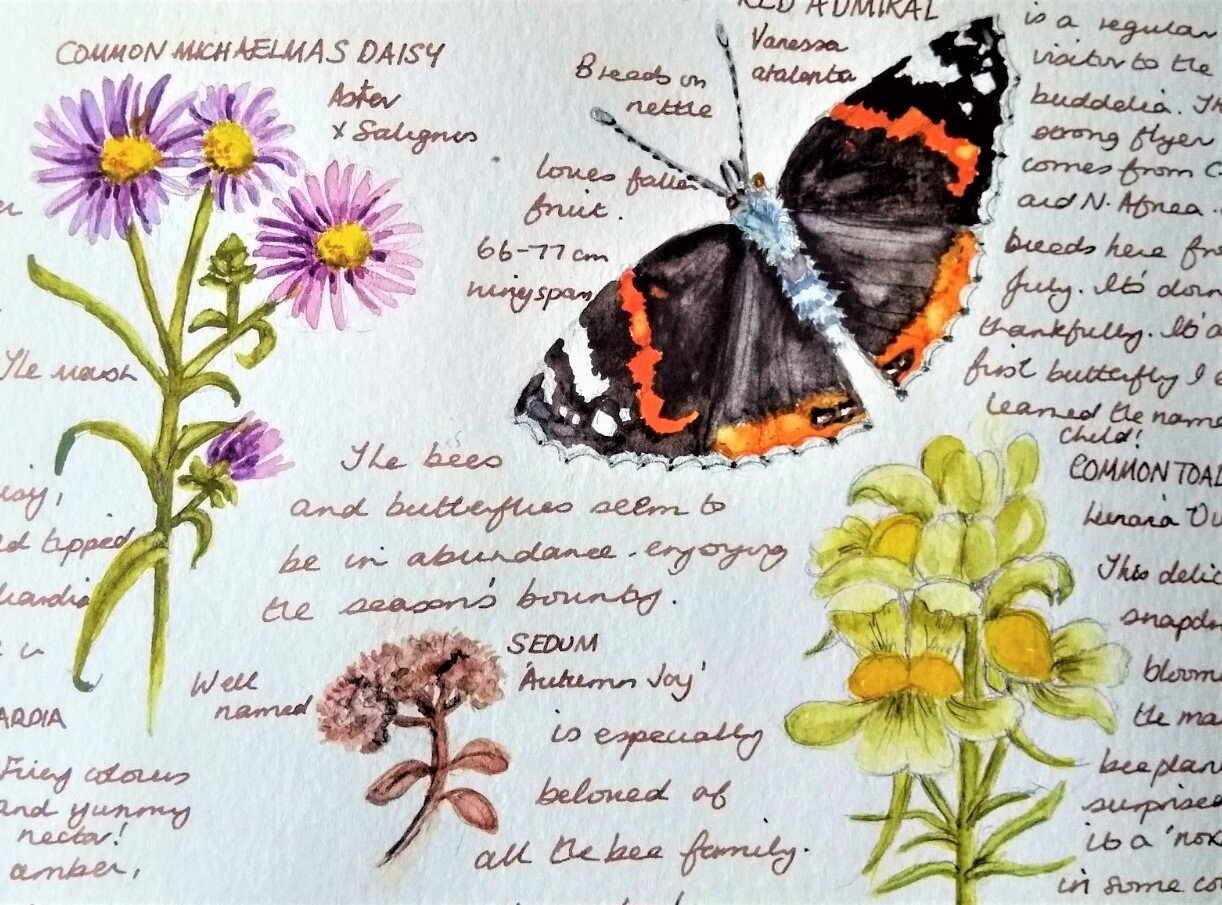 COMMON MICHAELMAS DAISY
Aster
x Salignus
The marsh
ed tipped
ARDIA
Fiery colours
and yummy
nectar!
amber,
RED ADMIRAL
Vanessa
atalanta
Breeds on
nettle
loves fallen
fruit.
66-77cm
wingspan
is a regular
visitor to the
buddelia. Th
strong flyer
comes from C
and N. Africa.
breeds here fr
July. It's dow
thankfully. It's
first butterfly I
learned the name
child!
The bees
and butterflies seem to
be in abundance enjoying
the season's bounty.
Well
named
SEDUM
'Autumn Joy'
is especially
beloved of
all the bee family.
COMMON TOAD
Linaria Vu
This delic
snapdr
bloom
the ma
bee plan
surprised
its a 'nox
in some co